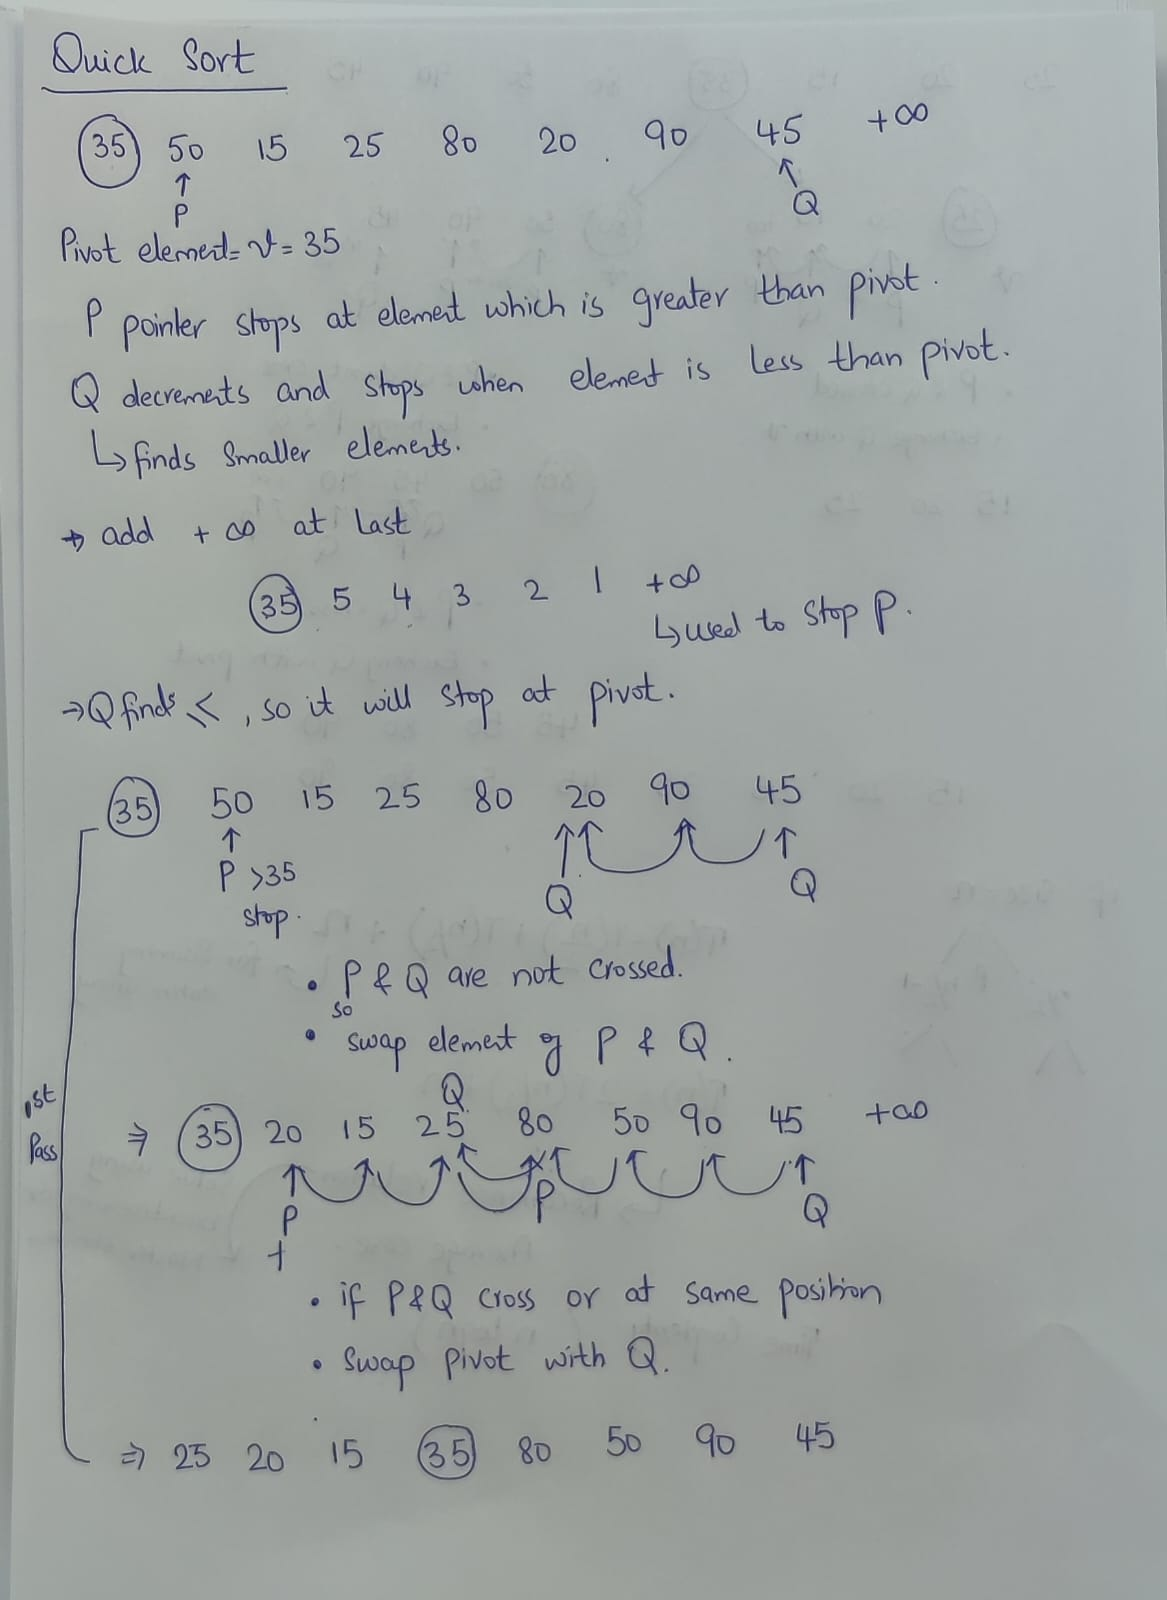 Quick Sort
35 50 15 25 80 20 90 45 +∞
↑ P ↑ Q
Pivot element = v = 35
P pointer stops at element which is greater than pivot.
Q decrements and stops when element is less than pivot.
↳ finds smaller elements.
→ add + ∞ at last
35 5 4 3 2 1 +∞
↳ used to stop P.
→ Q finds ≤, so it will stop at pivot.
35 50 15 25 80 20 90 45
↑ ↑ ↑ ↑ ↑
P >35 Q Q
stop.
• P & Q are not crossed.
so
• swap element of P & Q.
Q
1st Pass
⇒ 35 20 15 25 80 50 90 45 +∞
P P Q
+
• if P&Q cross or at same position
• Swap pivot with Q.
⇒ 25 20 15 35 80 50 90 45